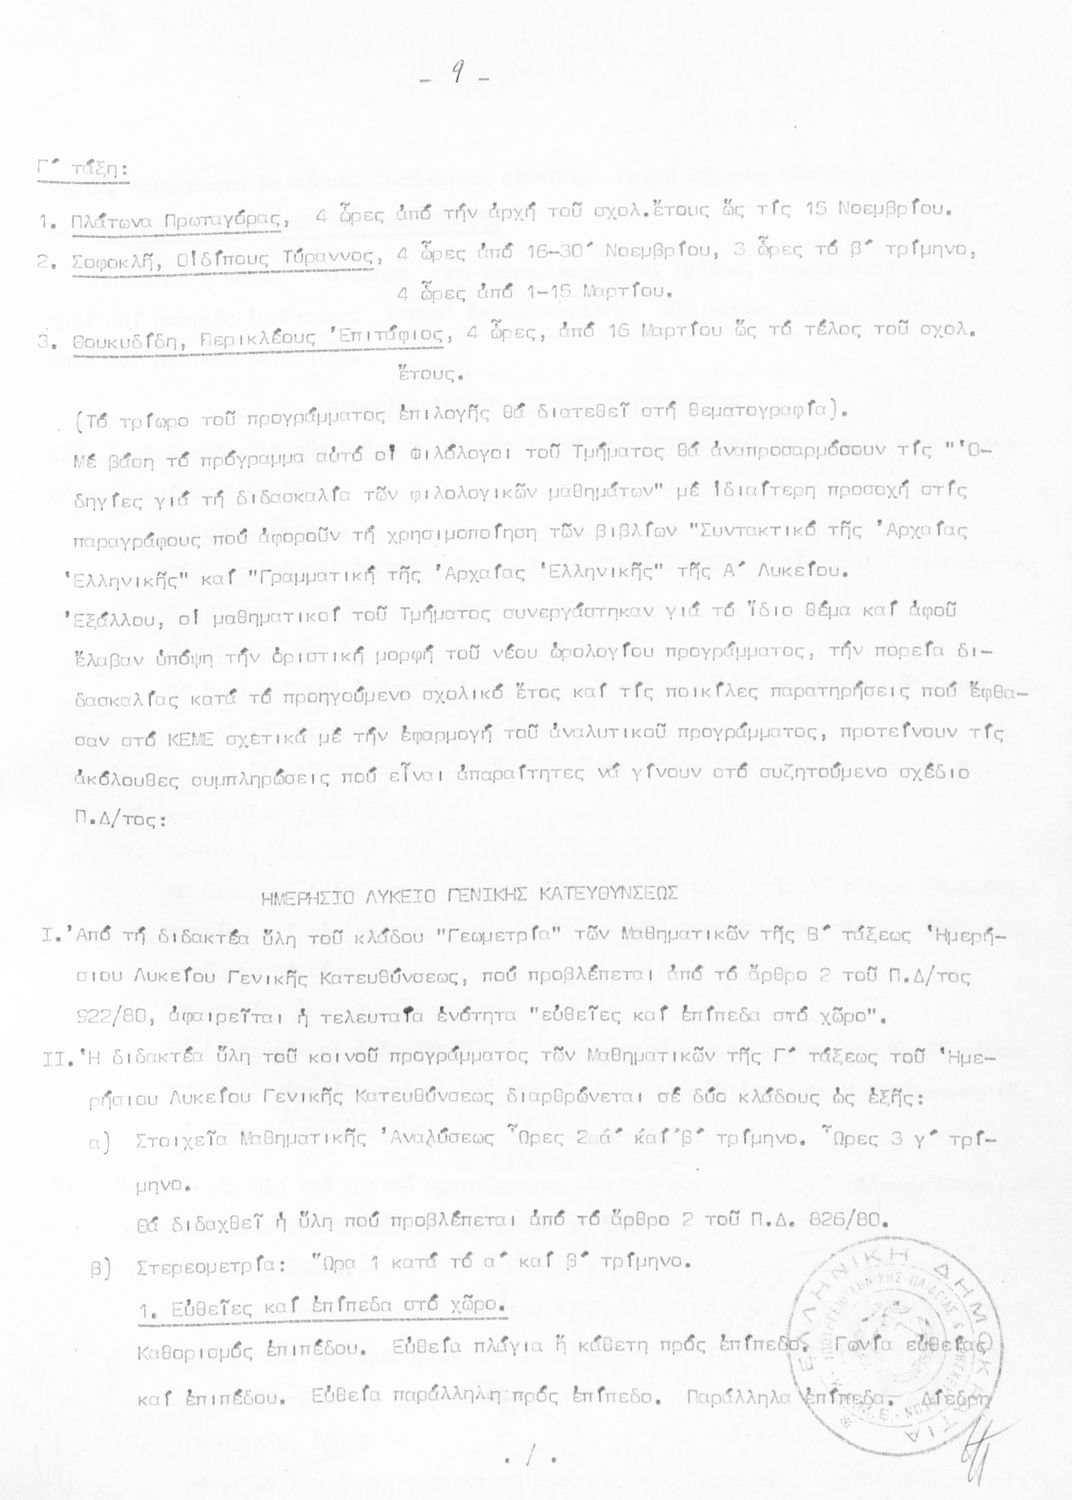 - 9 -
Γ΄ τάξη:
1. Πλάτωνα Πρωταγόρας, 4 ὧρες ἀπό τήν ἀρχή τοῦ σχολ.ἔτους ὥς τίς 15 Νοεμβρίου.
2. Σοφοκλῆ, Οἰδίπους Τύραννος, 4 ὧρες ἀπό 16-30΄ Νοεμβρίου, 3 ὧρες τό β΄ τρίμηνο,
4 ὧρες ἀπό 1-15 Μαρτίου.
3. Θουκυδίδη, Περικλέους Ἐπιτάφιος, 4 ὧρες, ἀπό 16 Μαρτίου ὥς τό τέλος τοῦ σχολ.
ἔτους.
(Τό τρίωρο τοῦ προγράμματος ἐπιλογῆς θά διατεθεῖ στή θεματογραφία).
Μέ βάση τό πρόγραμμα αὐτό οἱ Φιλόλογοι τοῦ Τμήματος θά ἀναπροσαρμόσουν τίς "Ὁ-
δηγίες γιά τή διδασκαλία τῶν φιλολογικῶν μαθημάτων" μέ ἰδιαίτερη προσοχή στίς
παραγράφους πού ἀφοροῦν τή χρησιμοποίηση τῶν βιβλίων "Συντακτικό τῆς Ἀρχαίας
Ἑλληνικῆς" καί "Γραμματική τῆς Ἀρχαίας Ἑλληνικῆς" τῆς Α΄ Λυκείου.
Ἐξάλλου, οἱ μαθηματικοί τοῦ Τμήματος συνεργάστηκαν γιά τό ἴδιο θέμα καί ἀφοῦ
ἔλαβαν ὑπόψη τήν ὁριστική μορφή τοῦ νέου ὡρολογίου προγράμματος, τήν πορεία δι-
δασκαλίας κατά τό προηγούμενο σχολικό ἔτος καί τίς ποικίλες παρατηρήσεις πού ἔφθα-
σαν στό ΚΕΜΕ σχετικά μέ τήν ἐφαρμογή τοῦ ἀναλυτικοῦ προγράμματος, προτείνουν τίς
ἀκόλουθες συμπληρώσεις πού εἶναι ἀπαραίτητες νά γίνουν στό συζητούμενο σχέδιο
Π.Δ/τος:
ΗΜΕΡΗΣΙΟ ΛΥΚΕΙΟ ΓΕΝΙΚΗΣ ΚΑΤΕΥΘΥΝΣΕΩΣ
Ι. Ἀπό τή διδακτέα ὕλη τοῦ κλάδου "Γεωμετρία" τῶν Μαθηματικῶν τῆς Β΄ τάξεως Ἡμερή-
σιου Λυκείου Γενικῆς Κατευθύνσεως, πού προβλέπεται ἀπό τό ἄρθρο 2 τοῦ Π.Δ/τος
922/80, ἀφαιρεῖται ἡ τελευταία ἑνότητα "εὐθεῖες καί ἐπίπεδα στό χῶρο".
ΙΙ. Ἡ διδακτέα ὕλη τοῦ κοινοῦ προγράμματος τῶν Μαθηματικῶν τῆς Γ΄ τάξεως τοῦ Ἡμε-
ρήσιου Λυκείου Γενικῆς Κατευθύνσεως διαρθρώνεται σέ δύο κλάδους ὡς ἑξῆς:
α) Στοιχεῖα Μαθηματικῆς Ἀναλύσεως Ὧρες 2 ά΄ καί β΄ τρίμηνο. Ὧρες 3 γ΄ τρί-
μηνο.
Θά διδαχθεῖ ἡ ὕλη πού προβλέπεται ἀπό τό ἄρθρο 2 τοῦ Π.Δ. 826/80.
β) Στερεομετρία: Ὥρα 1 κατά τό α΄ καί β΄ τρίμηνο.
1. Εὐθεῖες καί ἐπίπεδα στό χῶρο.
Καθορισμός ἐπιπέδου. Εὐθεία πλάγια ἤ κάθετη πρός ἐπίπεδο. Γωνία εὐθείας
καί ἐπιπέδου. Εὐθεία παράλληλη πρός ἐπίπεδο. Παράλληλα ἐπίπεδα. Δίεδρη
ΕΛΛΗΝΙΚΗ ΔΗΜΟΚΡΑΤΙΑ
./.